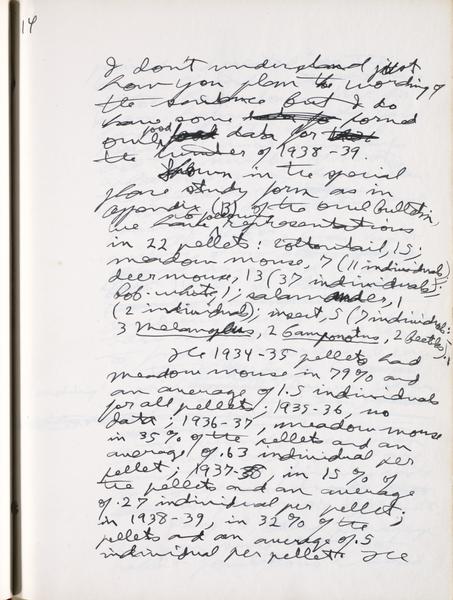 14
I don't understand just
how you plan the wording of
the sentence but I do
have some
owl food data for
the winter of 1938-39.
Shown in the special
place study form as in
appendix (B) of the owl bulletin
we have representations
in 22 pellets: cottontail, 15;
meadow mouse, 7 (11 individuals);
deer mouse, 13 (37 individuals);
bob-white, 1; salamander, 1
(2 individuals); insect, 5 (7 individuals:
3 Melanoplus, 2 Camponotus, 2 beetles).
The 1934-35 pellets had
meadow mouse in 79% and
an average of 1.5 individuals
for all pellets; 1935-36, no
data; 1936-37, meadow mouse
in 35% of the pellets and an
average of .63 individual per
pellet; 1937-38, in 15% of
the pellets and an average
of .27 individual per pellet;
in 1938-39, in 32% of the
pellets and an average of .5
individual per pellet. The